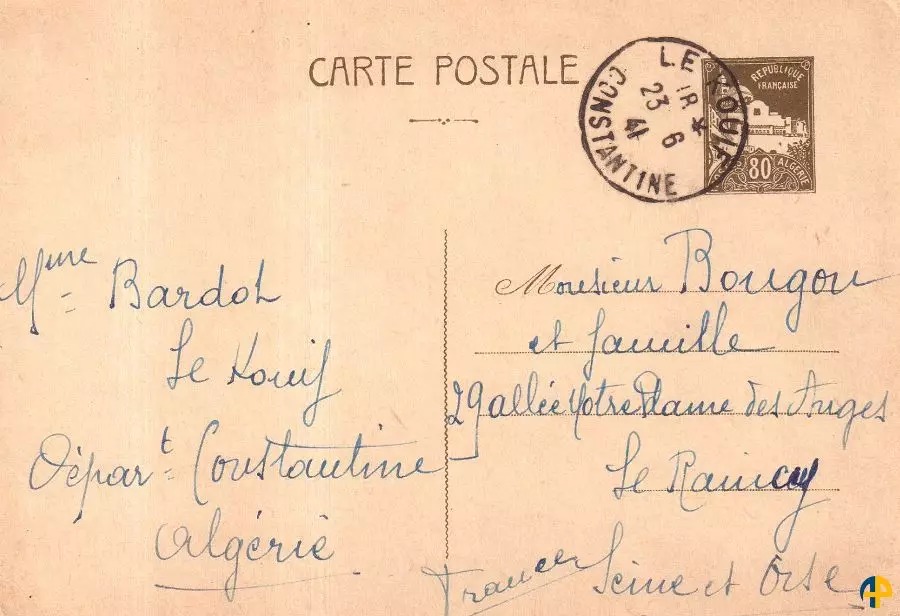 CARTE POSTALE
LE KOUIF
23 6
41
CONSTANTINE
RÉPUBLIQUE
FRANÇAISE
80
ALGÉRIE
Mme Bardol
Le Kouif
Départt Constantine
Algérie
Monsieur Bougon
et famille
29 allée Notre Dame des Anges
Le Raincy
Seine et Oise
France